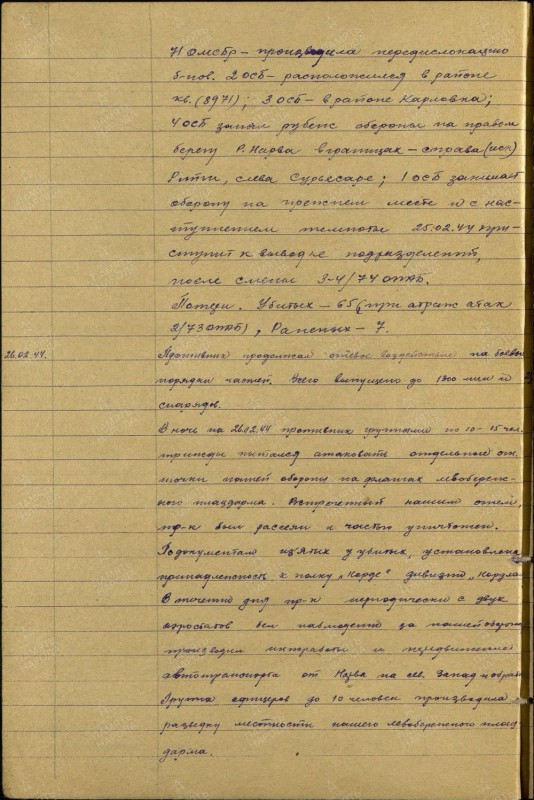 71 ОМСБр – производила передислокацию
б-нов. 2 ОСБ – расположился в районе
кв. (8971); 3 ОСБ – в районе Карловка;
4 ОСБ занял рубеж обороны на правом
берегу р. Нарва в границах – справа (иск)
слева Сурьесаре; 1 ОСБ занимает
оборону на прежнем месте и с нас-
туплением темноты 25.02.44 при-
ступит к выводу подразделений,
после смены 3-4/74 ОПАБ.
Потери. Убитых – 65 (при отраж. атак
2/73 ОПАБ), Раненых – 7.
26.02.44. Противник продолжал огневое воздействие на боевые
порядки частей. Всего выпущено до 1300 мин и
снарядов.
В ночь на 26.02.44 противник группами по 10-15 чел.
трижды пытался атаковать отдельные огн.
точки нашей обороны на флангах левобереж-
ного плацдарма. Встреченный нашим огнем,
пр-к был рассеян и частью уничтожен.
По документам изятых у убитых, установлена
принадлежность к полку „Норде" дивизии
В течении дня пр-к периодически с двух
аэростатов вел наблюдение за нашей обороной
производил инж.работы и передвижение
автотранспорта от Нарва на сев. запад и обратн
Группа офицеров до 10 человек производила
разведку местности нашего левобережного плац-
дарма.